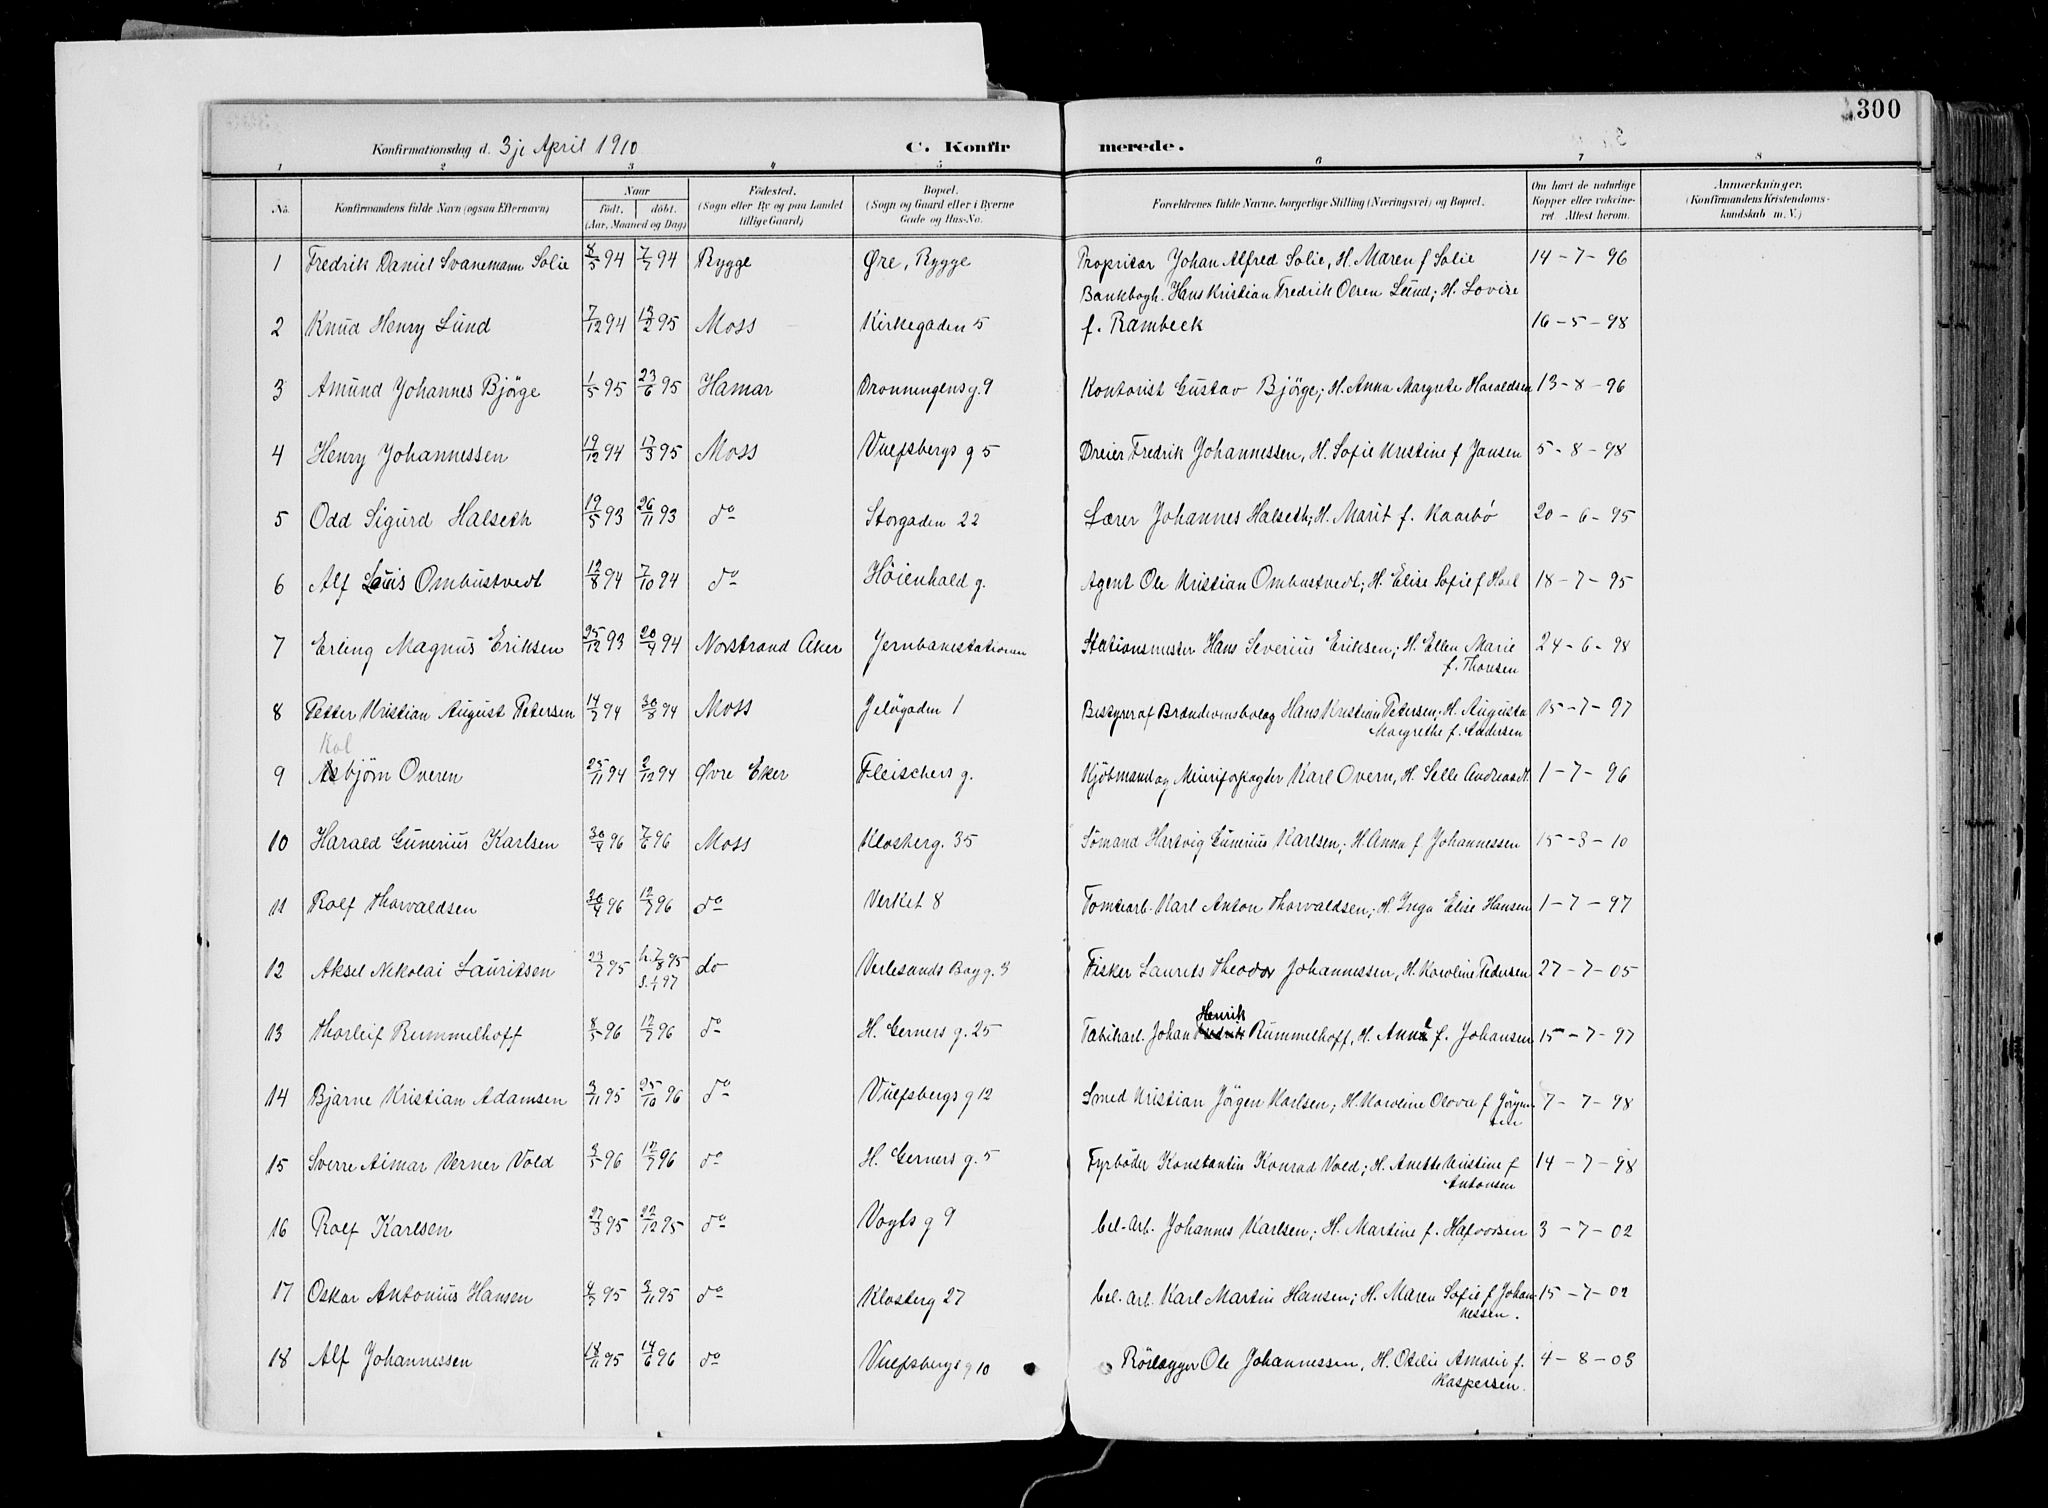 300
Konfirmationsdag d. 3je April 1910 C. Konfirmerede.
1 2 3 4 5 6 7 8
No. Konfirmandens fulde Navn (ogsaa Efternavn) Naar født. døbt. (Aar, Maaned og Dag) Födested. (Sogn eller By og paa Landet tillige Gaard) Bopæl. (Sogn og Gaard eller i Byerne Gade og Hus-No. Forældrenes fulde Navne, borgerlige Stilling (Næringsvei) og Bopæl. Om havt de naturlige Kopper eller vakcineret Attest herom. Anmærkninger. (Konfirmandens Kristendomskundskab m. V.)
1 Fredrik Daniel Svanemann Solie 8/5 94 7/7 94 Rygge Øre, Rygge Propritær Johan Alfred Solie, H. Maren f Solie 14-7-96
2 Knud Henry Lund 7/12 94 13/2 95 Moss Kirkegaden 5 Bankbogh. Hans Kristian Fredrik Olsen Lund; H. Lovise
f. Rambeck 16-5-98
3 Amund Johannes Bjørge 1/5 95 23/6 95 Hamar Dronningensg. 9 Kontorist Gustav Bjørge; H. Anna Margrete Haraldsen 13-8-96
4 Henry Johannessen 19/12 94 17/3 95 Moss Vulfsbergs g 5 Dreier Fredrik Johannessen, H. Sofie Kristine f Jansen 5-8-98
5 Odd Sigurd Halseth 19/5 93 26/11 93 do Storgaden 22 Lærer Johannes Halseth; H. Marit f. Kaarbö 20-6-95
6 Alf Louis Ombustvedt 12/8 94 7/10 94 do Höienhald g. Agent Ole Kristian Ombustvedt; H. Elise Sofie f Hoel 18-7-95
7 Erling Magnus Eriksen 25/12 93 20/4 94 Norstrand Aker Jernbanestationen Stationsmester Hans Severius Eriksen; H. Ellen Marie 24-6-98
f. Thonsen
8 Petter Kristian August Petersen 14/7 94 30/8 94 Moss Jeløgaden 1 Bestyrer af Brændevinsbolag Hans Kristian Petersen; H. Augusta 15-7-97
Margrethe f. Andersen
Kol
9 Asbjørn Overen 25/11 94 2/12 94 Øvre Eker Fleischers g. Kjöbmand og Meieriforpagter Karl Overn, H. Selle Andrea 1-7-96
10 Harald Gunerius Karlsen 30/4 96 7/6 96 Moss Klosterg. 35 Sömand Hartvig Gunerius Karlsen; H. Anna f Johannessen 15-3-10
11 Rolf Thorvaldsen 30/4 96 12/7 96 do Verket 8 Tomtearb. Karl Anton Thorvaldsen; H. Inga Elise Hansen 1-7-97
12 Aksel Nikolai Lauritsen 23/7 95 h. 7/8 95 do Verlesands Bag g. 3 Fisker Laurits Theodor Johannessen, H. Karoline Pedersen 27-7-05
S. 1/1 97
Henrik
13 Thorleif Rummelhoff 8/5 96 12/7 96 do H. Gerners g. 25 Fabikarb. Johan Rummelhoff, H. Anne f. Johansen 15-7-97
14 Bjarne Kristian Adamsen 3/11 95 25/10 96 do Vulfsbergs g 12 Smed Kristian Jörgen Karlsen; H. Karoline Olava f Jörgen- 7-7-98
sen
15 Sverre Aimar Verner Vold 3/5 96 12/7 96 do H. Gerners g. 5 Fyrböder Konstantin Konrad Vold; H. Anette Kristine f 14-7-98
Antonsen
16 Rolf Karlsen 27/3 95 22/12 95 do Vogts g 9 Cel. Arb. Johannes Karlsen; H. Martine f. Halvorsen 3-7-02
17 Oskar Antonius Hansen 4/7 95 3/11 95 do Klosterg 27 Cel. arb. Karl Martin Hansen; H. Maren Sofie f Johan- 15-7-02
nessen.
18 Alf Johannessen 18/11 95 14/6 96 do Vulfsbergs g 10 Rörlægger Ole Johannessen, H. Otelie Amalie f. 4-8-03
Kaspersen.